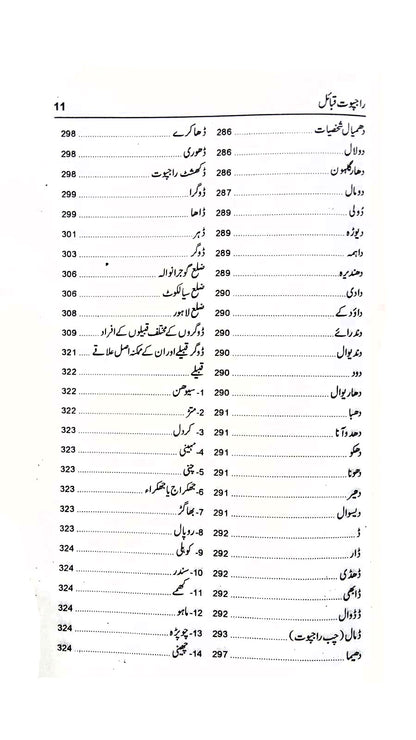 راجپوت قبائل
11
دھمیال شخصیات 286
دولال 286
دھار گلہون 286
دومال 287
دُولی 289
دیوڑہ 289
داہمہ 289
دھندیرہ 289
دادی 290
داؤد کے 290
دندرائے 290
دندیوال 290
دود 290
دھاریوال 290
دھبا 291
دھدوآنا 291
دھکو 291
دھوتا 291
دھیر 291
دیسوال 291
ڈ 292
ڈار 292
ڈھڈی 292
ڈابھی 292
ڈڈوال 292
ڈمال (چب راجپوت) 293
دھیما 297
ڈھاکرے 298
ڈھوری 298
ڈکھشٹ راجپوت 298
ڈوگرا 299
ڈاھا 299
ڈہر 301
ڈوگر 303
ضلع گوجرانوالہ 306
ضلع سیالکوٹ 306
ضلع لاہور 308
ڈوگروں کے مختلف قبیلوں کے افراد 309
ڈوگر قبیلے اور ان کے ممکنہ اصل علاقے 321
قبیلے 322
1- سیوھن 322
2- متڑ 322
3- کردل 323
4- مہینی 323
5- چنی 323
6- جھکراج یا جھکراء 323
7- بھاگڑ 323
8- روپال 323
9- کوہلی 324
10- سندر 324
11- کھمے 324
12- ماہو 324
13- چوپڑہ 324
14- چھینی 324